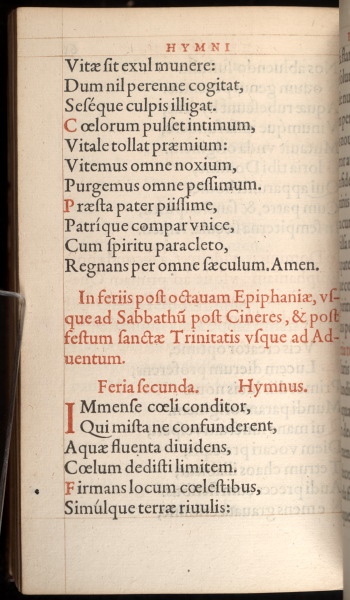 HYMNI
Vitæ ſit exul munere:
Dum nil perenne cogitat,
Seſéque culpis illigat.
Cœlorum pulſet intimum,
Vitale tollat præmium:
Vitemus omne noxium,
Purgemus omne peſſimum.
Præſta pater piiſſime,
Patríque compar vnice,
Cum ſpiritu paracleto,
Regnans per omne ſæculum. Amen.
In feriis poſt octauam Epiphaniæ, vſ-
que ad Sabbathū poſt Cineres, & poſt
feſtum ſanctæ Trinitatis vſque ad Ad-
uentum.
Feria ſecunda. Hymnus.
IMmenſe cœli conditor,
Qui miſta ne confunderent,
Aquæ fluenta diuidens,
Cœlum dediſti limitem.
Firmans locum cœleſtibus,
Simúlque terræ riuulis: